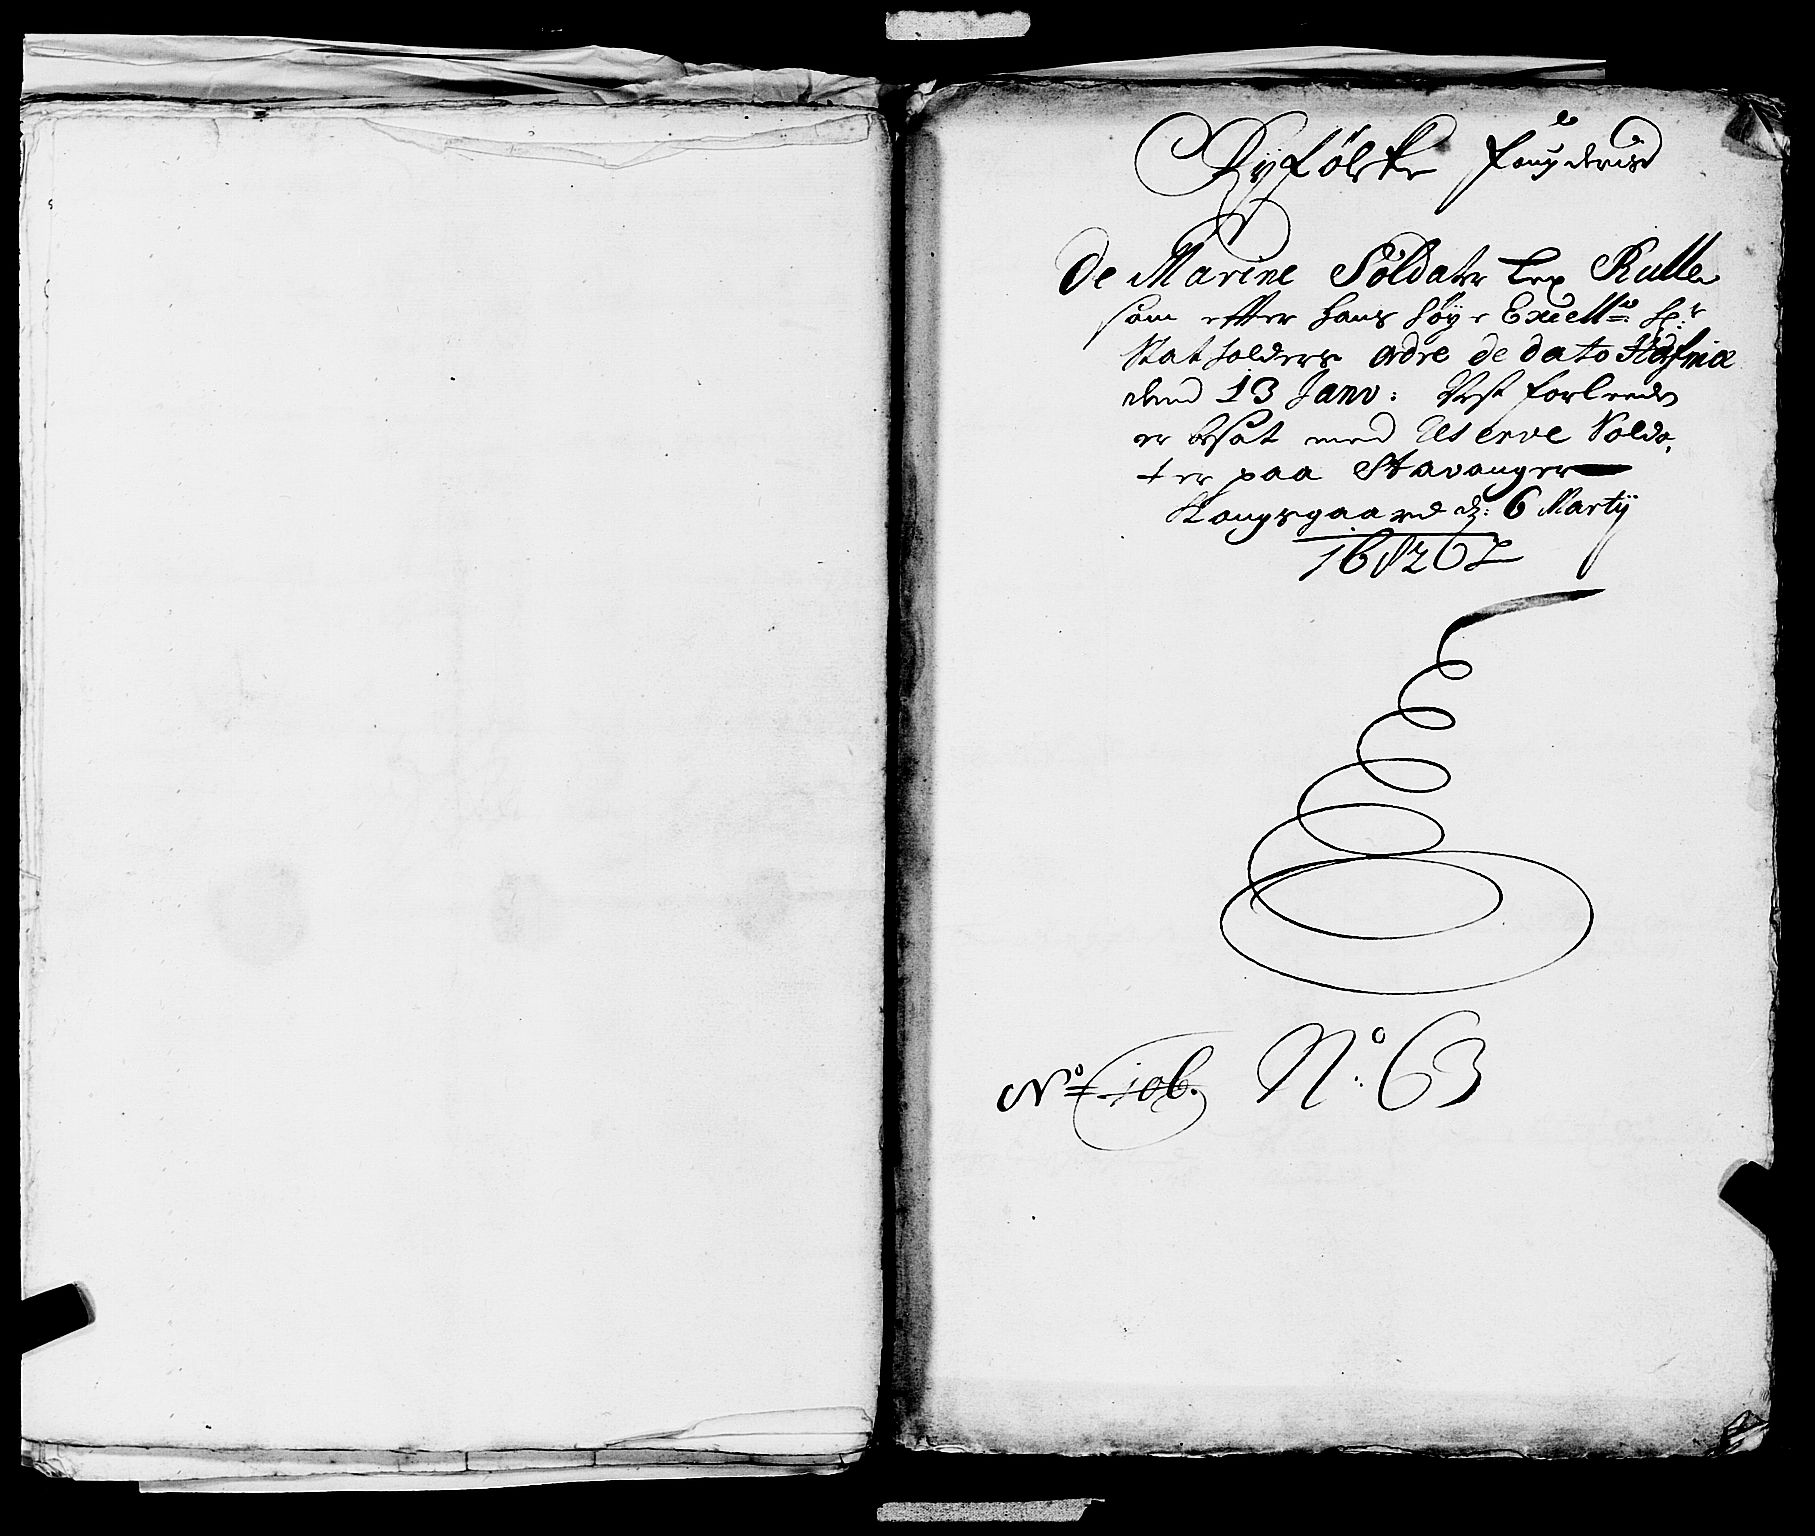 Ryfølke fougderies
de Marine Soldater Lex Rulle
som efter hans høye Excell: hr:
Statholders ordre de dato Hafniæ
dend 13 Janv: Nest forleeden
er besat med Reserve Solda,
ter paa Stavanger
Kongsgaard d: 6 Martij
1682
No 106. No: 63